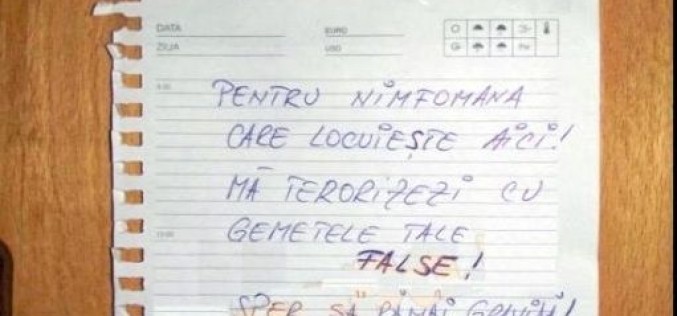 DATA EURO
ZIUA USD
8.00
PENTRU NIMFOMANA
CARE LOCUIEȘTE AICI!
MĂ TERORIZEZI CU
13.00
GEMETELE TALE
FALSE!
SPER SĂ RĂMÂI GRAVIDĂ!